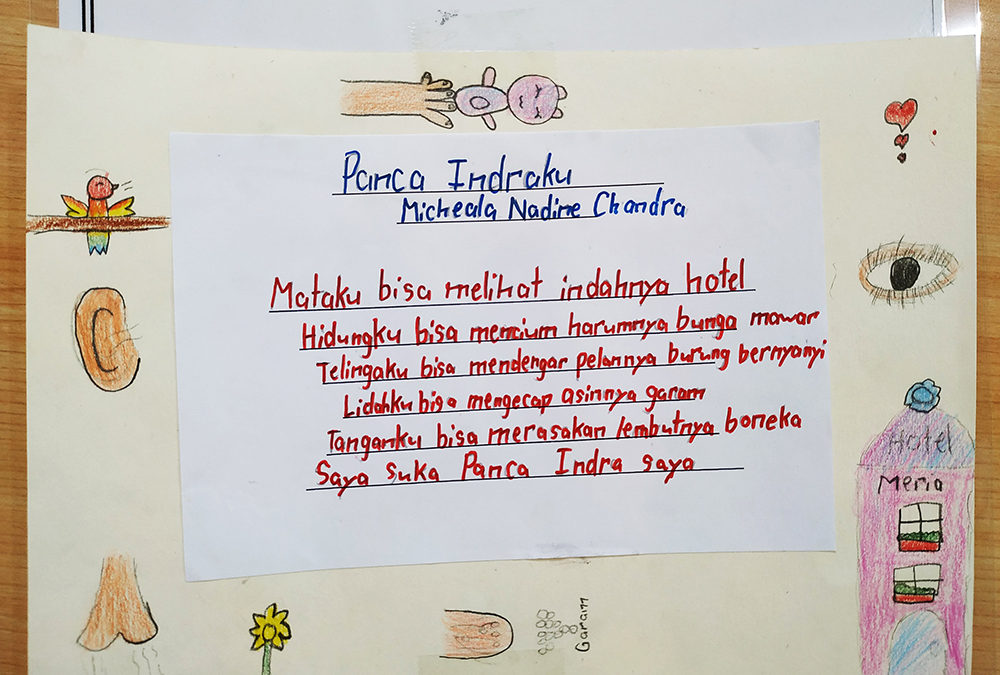 Panca Indraku
Micheala Nadine Chandra
Mataku bisa melihat indahnya hotel
Hidungku bisa mencium harumnya bunga mawar
Telingaku bisa mendengar pelannya burung bernyanyi
Lidahku bisa mengecap asinnya garam
Tanganku bisa merasakan lembutnya boneka
Saya suka Panca Indra saya
Hotel
Meria
Garam